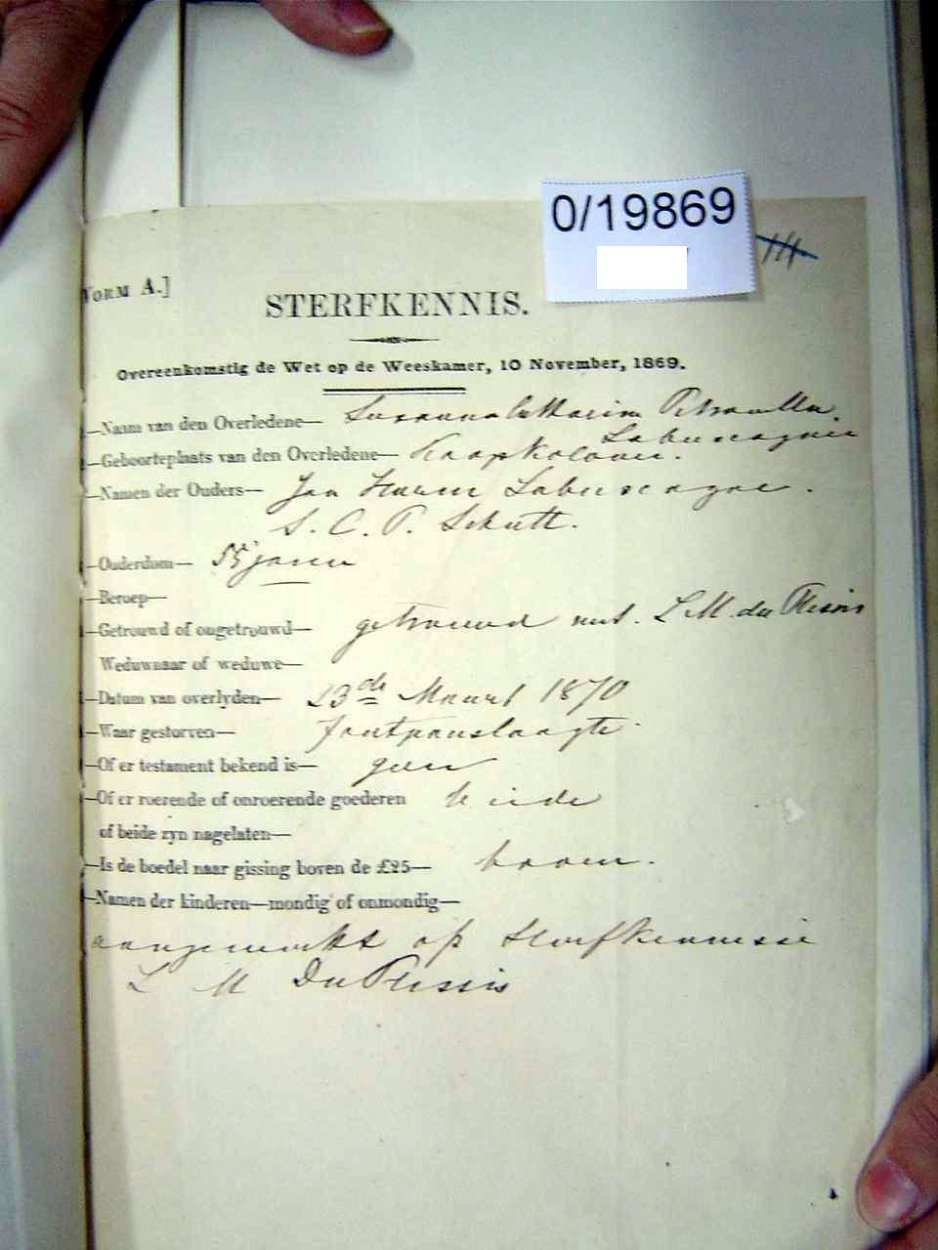 0/19869
Vorm A.]
STERFKENNIS.
Overeenkomstig de Wet op de Weeskamer, 10 November, 1869.
—Naam van den Overledene— Susanna Catharina Petronella
Labuscagnie
—Geboorteplaats van den Overledene— Kaapkolonie.
—Namen der Ouders— Jan Harm Labuscagne.
S. C. P. Schutt.
—Ouderdom— 55 jaren
—Beroep—
—Getrouwd of ongetrouwd— getrouwd met. L M. du Plessis
Weduwnaar of weduwe—
—Datum van overlyden— 23de Maart 1870
—Waar gestorven— Zoutpanslaagte
—Of er testament bekend is— geen
—Of er roerende of onroerende goederen beide
of beide zyn nagelaten—
—Is de boedel naar gissing boven de £25— boven.
—Namen der kinderen—mondig of onmondig—
aangemerkt op sterfkennisse
L M Du Plessis